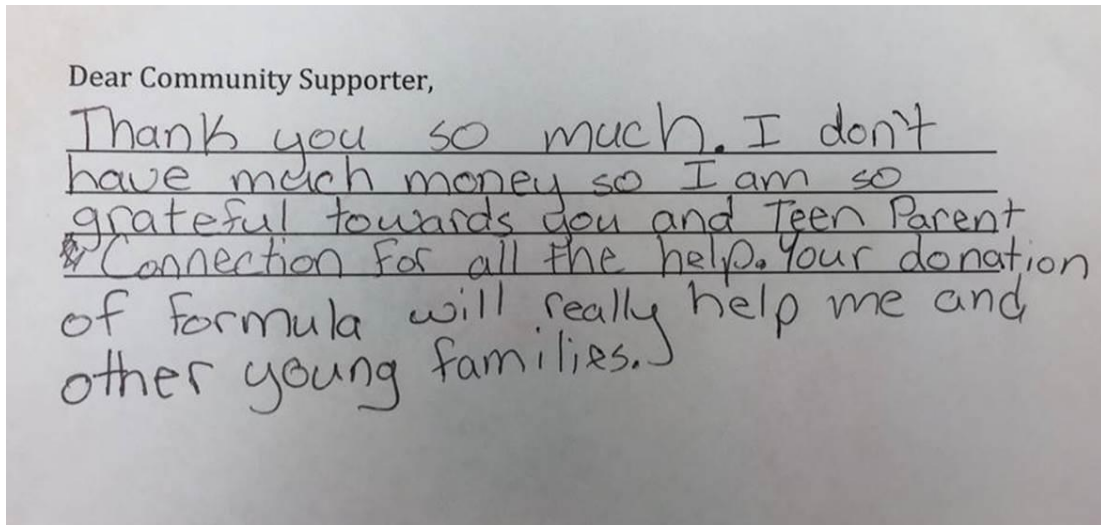 Dear Community Supporter,
Thank you so much. I don't
have much money so I am so
grateful towards you and Teen Parent
Connection for all the help. Your donation
of formula will really help me and
other young families.